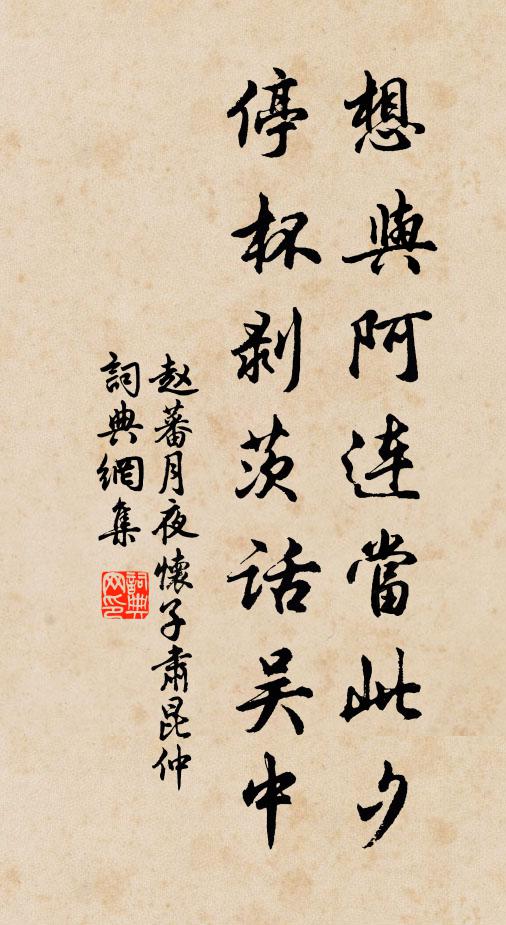 想與阿连當此夕
停杯剥茨話吴中
赵蕃月夜懷子肅昆仲
詞典網集
詞典网印